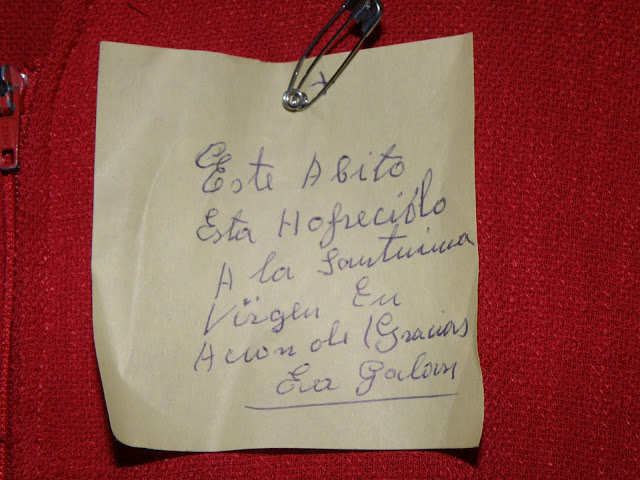 Este Abito
Esta Hofrecido
A la Santisima
Virgen En
Acion de (Gracias)
Eva Galan